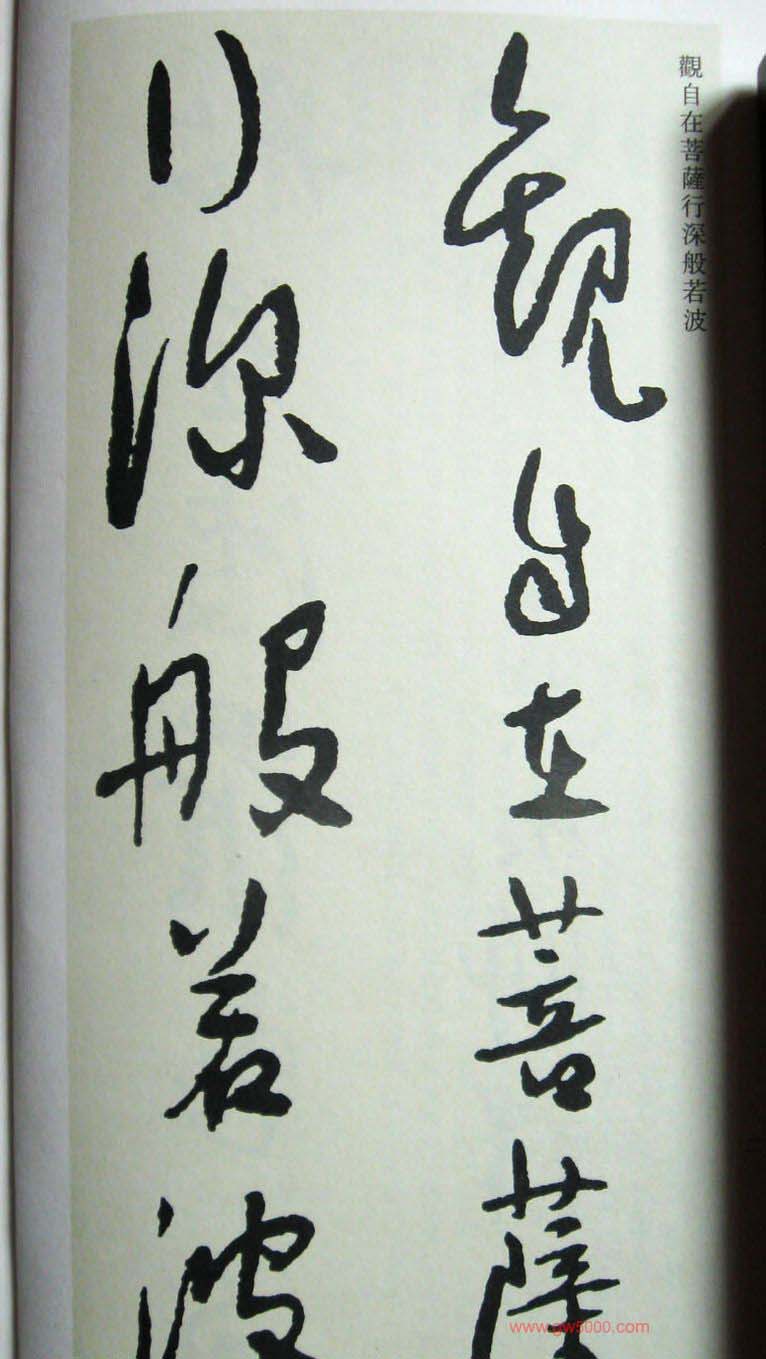 觀自在菩薩行深般若波
觀自在菩薩
行深般若波
www.gw5000.com